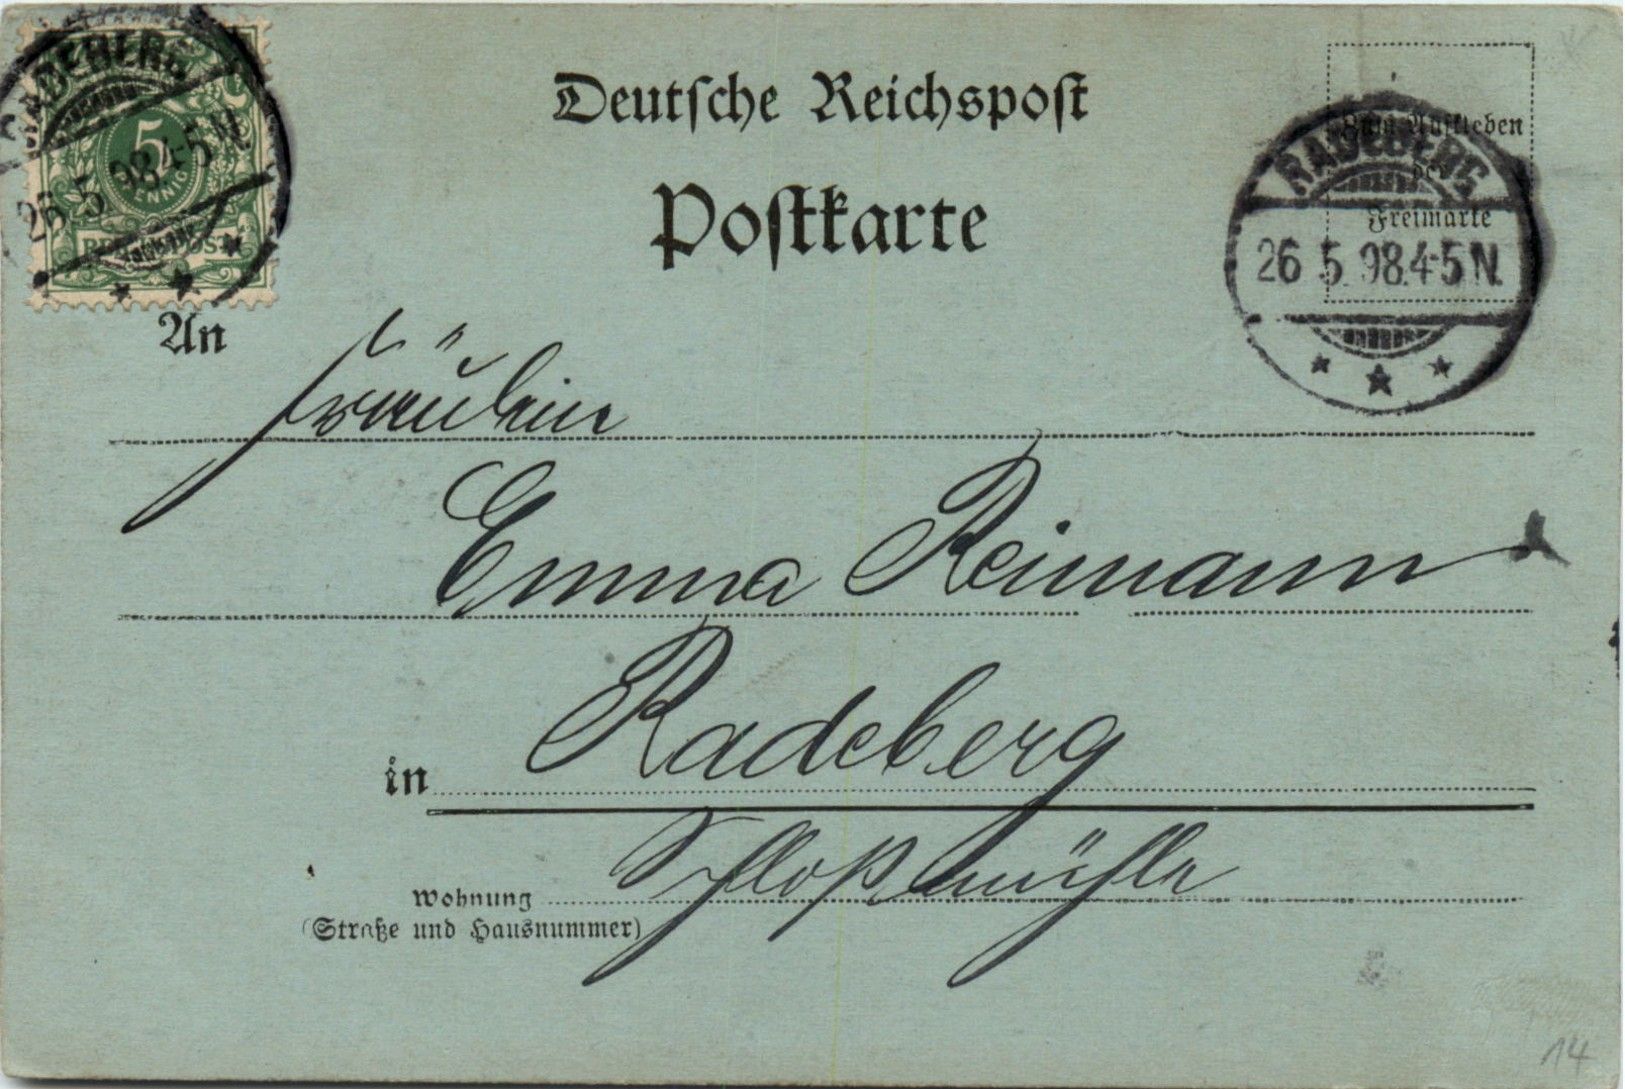 RADEBERG
5
PFENNIG
26 5 98 4-5 N
REICHSPOST
Deutsche Reichspost
Postkarte
Zum Aufkleben
der
Freimarke
RADEBERG
26 5 98 4-5 N.
An
Fräulein
Emma Reimann
in Radeberg
Schloßmühle
Wohnung
(Straße und Hausnummer)
14